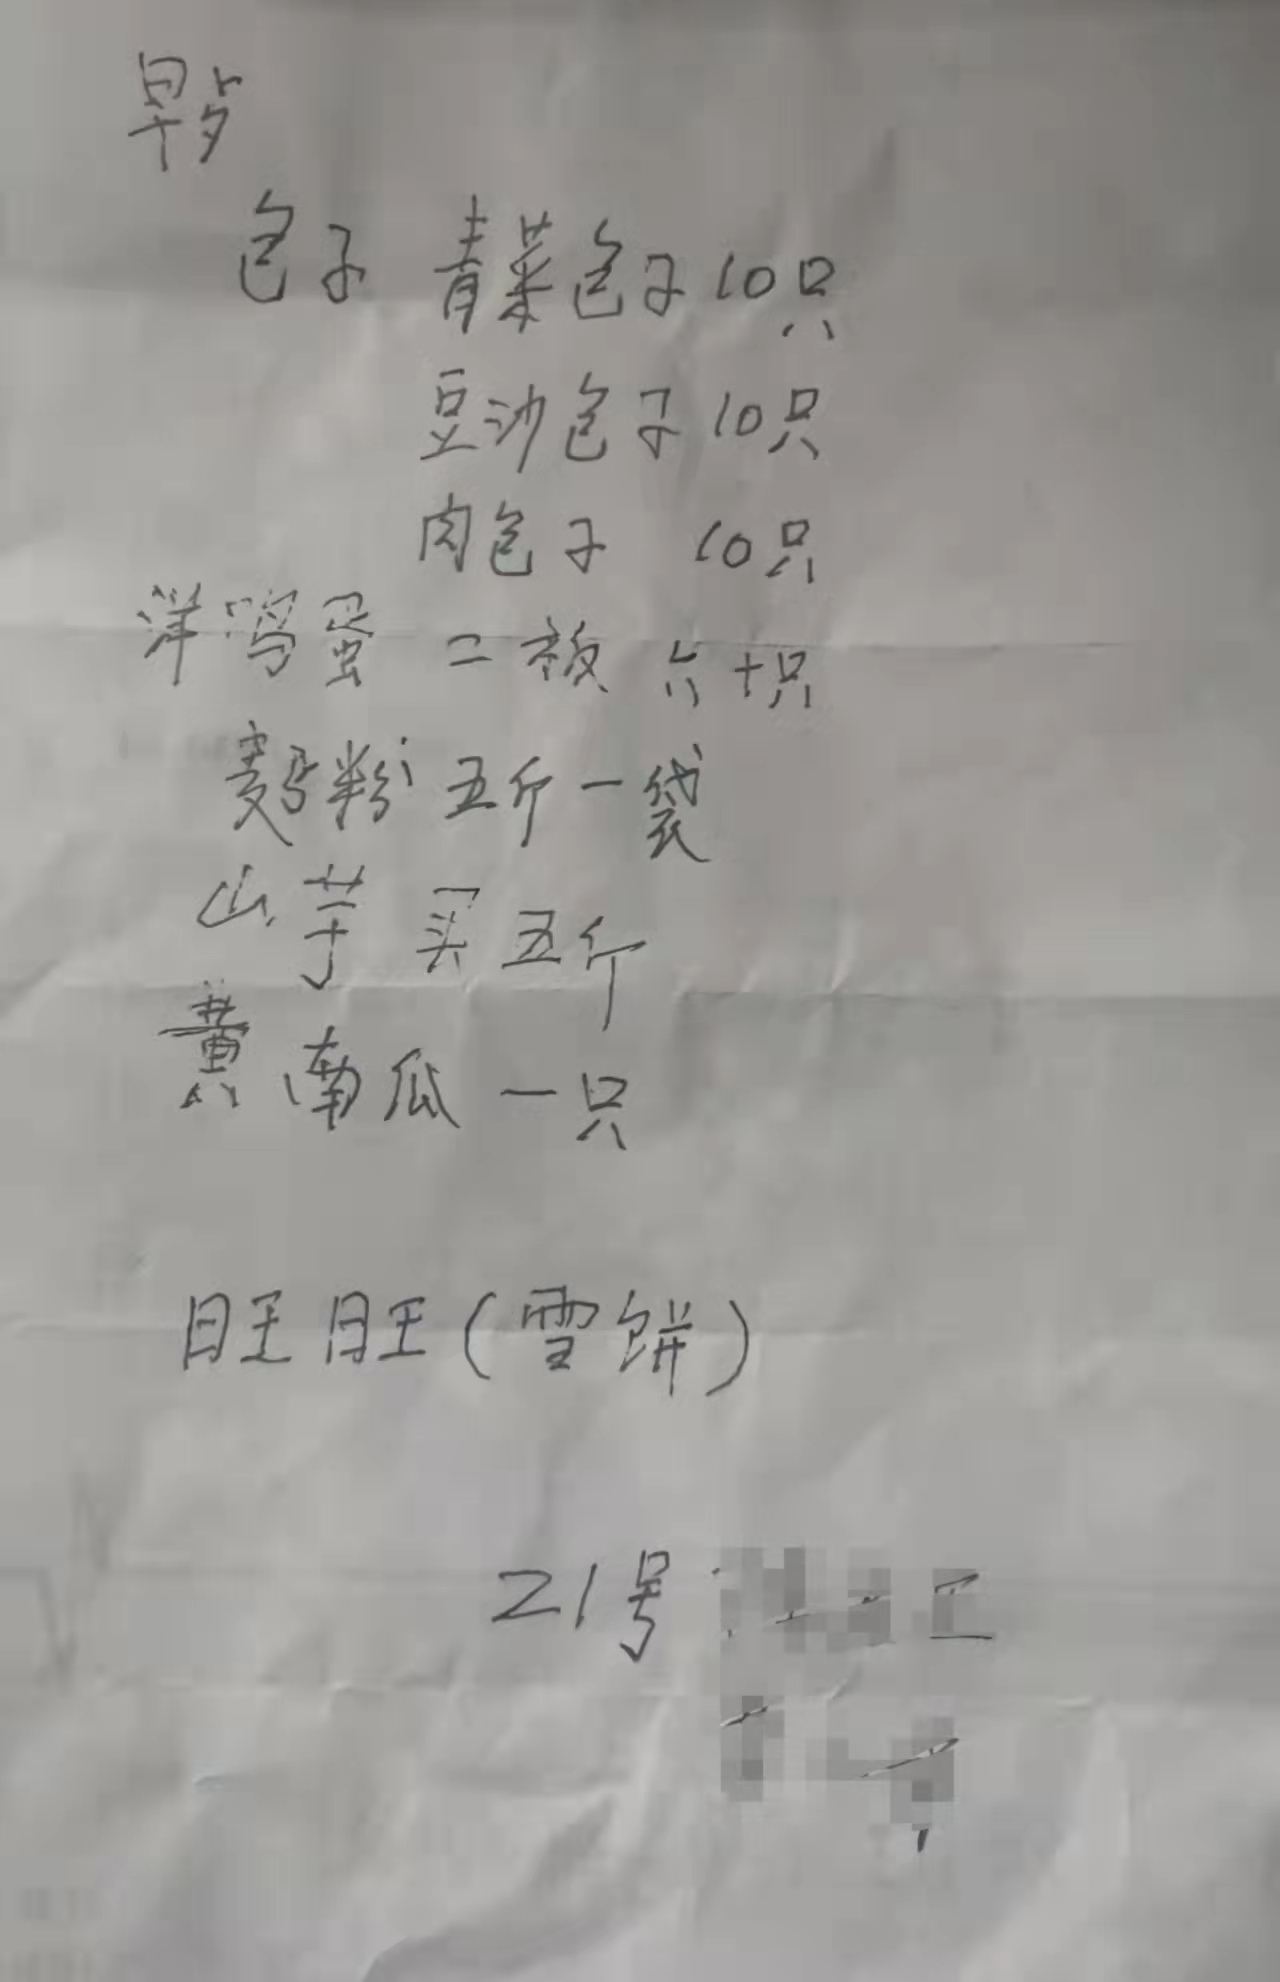 早歺
包子 青菜包子10只
豆沙包子10只
肉包子 10只
洋鸡蛋 二板 六十只
粉 五斤一袋
山芋 买五斤
黄南瓜一只
旺旺(雪饼)
21号